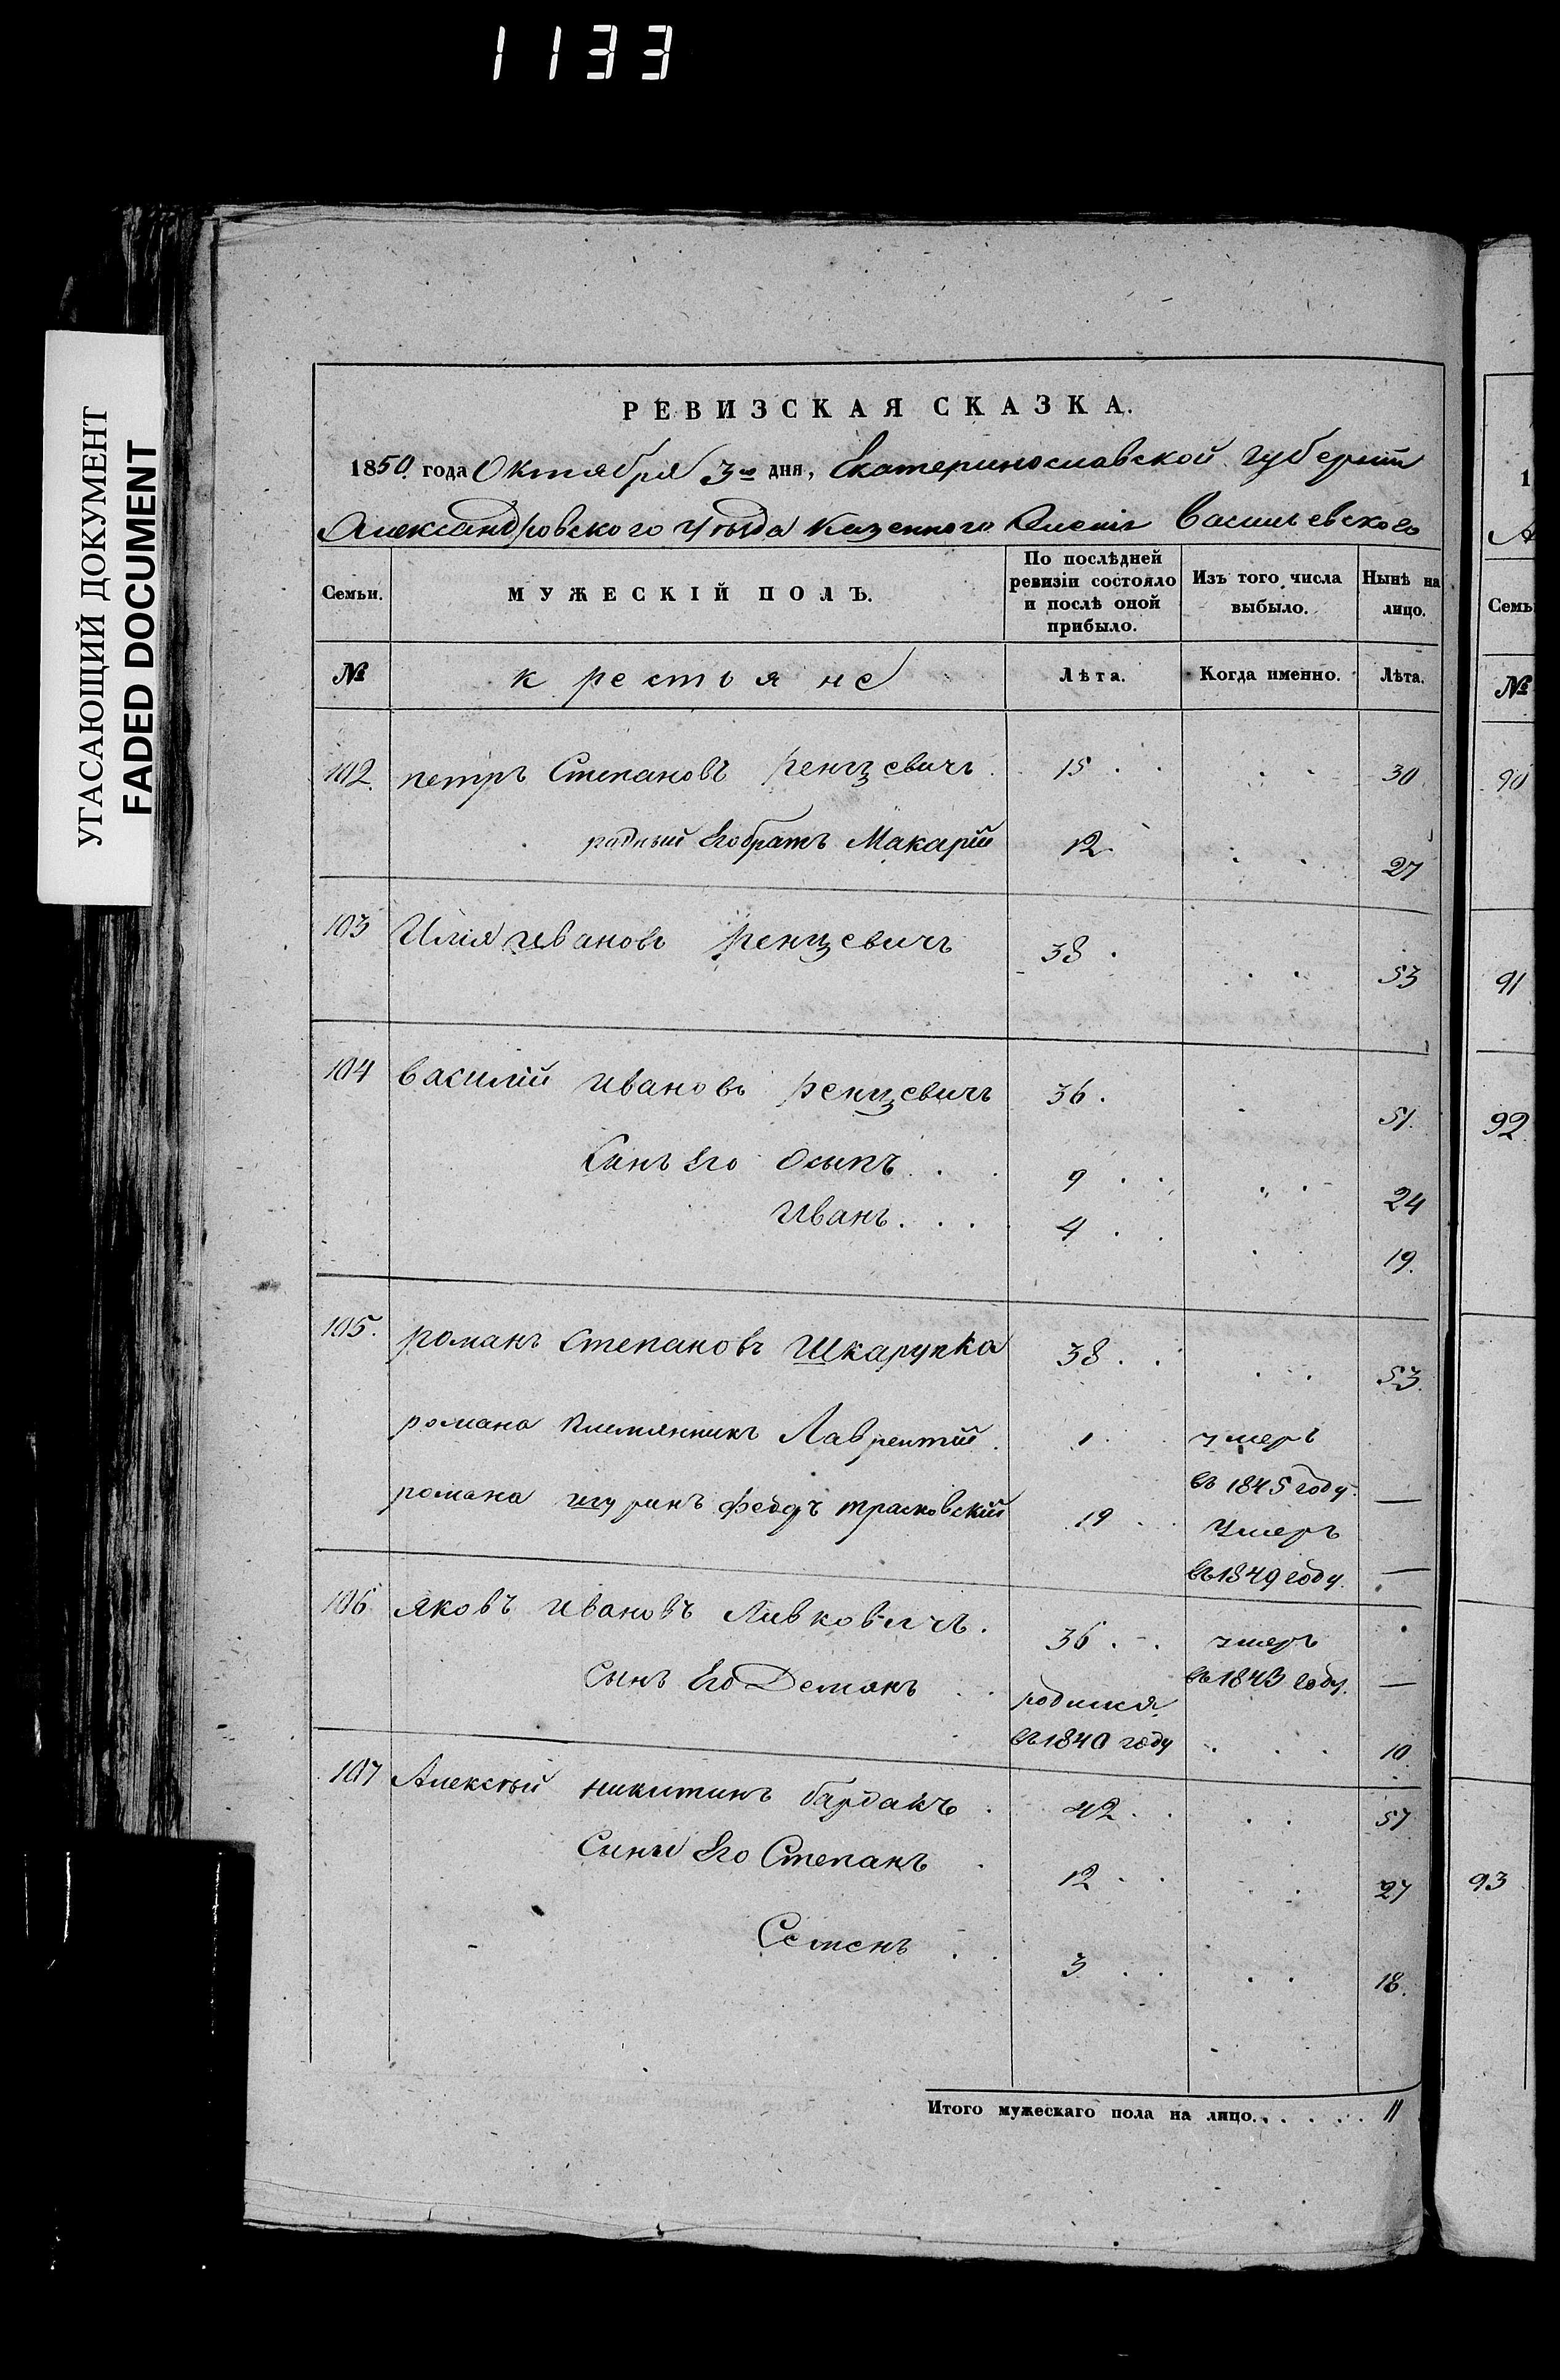 1133
УГАСАЮЩИЙ ДОКУМЕНТ
FADED DOCUMENT
РЕВИЗСКАЯ СКАЗКА.
1850 года Октября 3го дня, Екатеринославской губернии
Александровского Уезда Казенного Имения Васильевского
Семьи. МУЖЕСКІЙ ПОЛЪ. По послѣдней ревизіи состояло и послѣ оной прибыло. Изъ того числа выбыло. Нынѣ на лицо.
№ крестьяне Лѣта. Когда именно. Лѣта.
102. петръ Степановъ ренцевичъ 15 30
родный Его братъ Макарій 12 27
103 Илія ивановъ ренцевичъ 38 53
104 василій ивановъ ренцевичъ 36 51
Синъ Его Осыпъ 9 24
Иванъ 4 19.
105. романъ Степановъ Шкарупка 38 53
романа племянникъ Лаврентій 1 умеръ
въ 1845 году —
романа шуринъ 19 Умеръ
въ 1849 году —
106 яковъ ивановъ Ливковичъ. 36 умеръ
въ 1843 году. —
Сынъ Его Демянъ родился
въ 1840 году 10
107 Алексѣй никитинъ бардакъ 42 57
Сины Его Степанъ 12 27
Семенъ 3 18.
Итого мужескаго пола на лицо 11
1
А
Семь
№
90
91
92
93